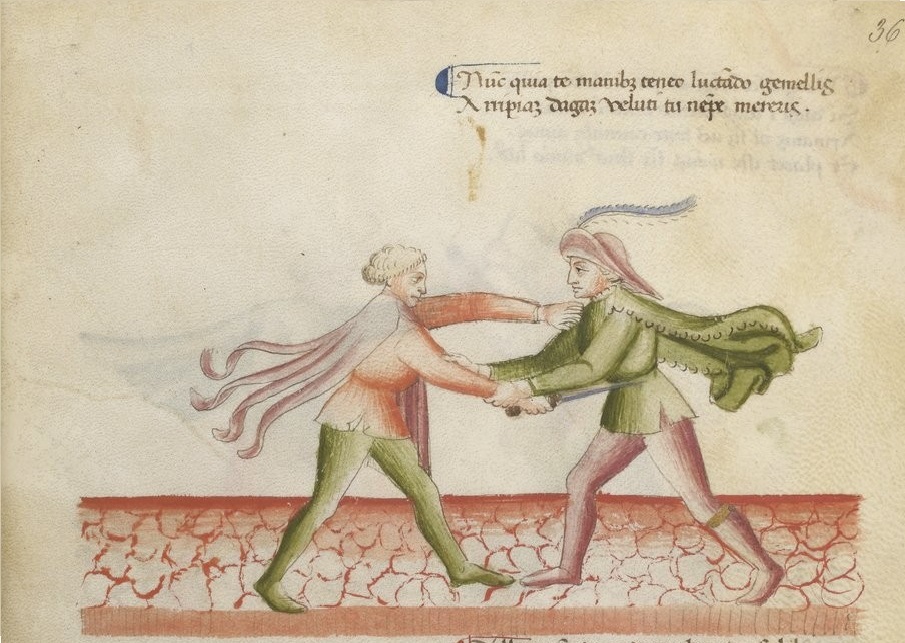 36
Nūc quia te manibꝫ teneo luctādo gemellis
Arripiaꝫ dagaꝫ veluti tu nēpe mereris.